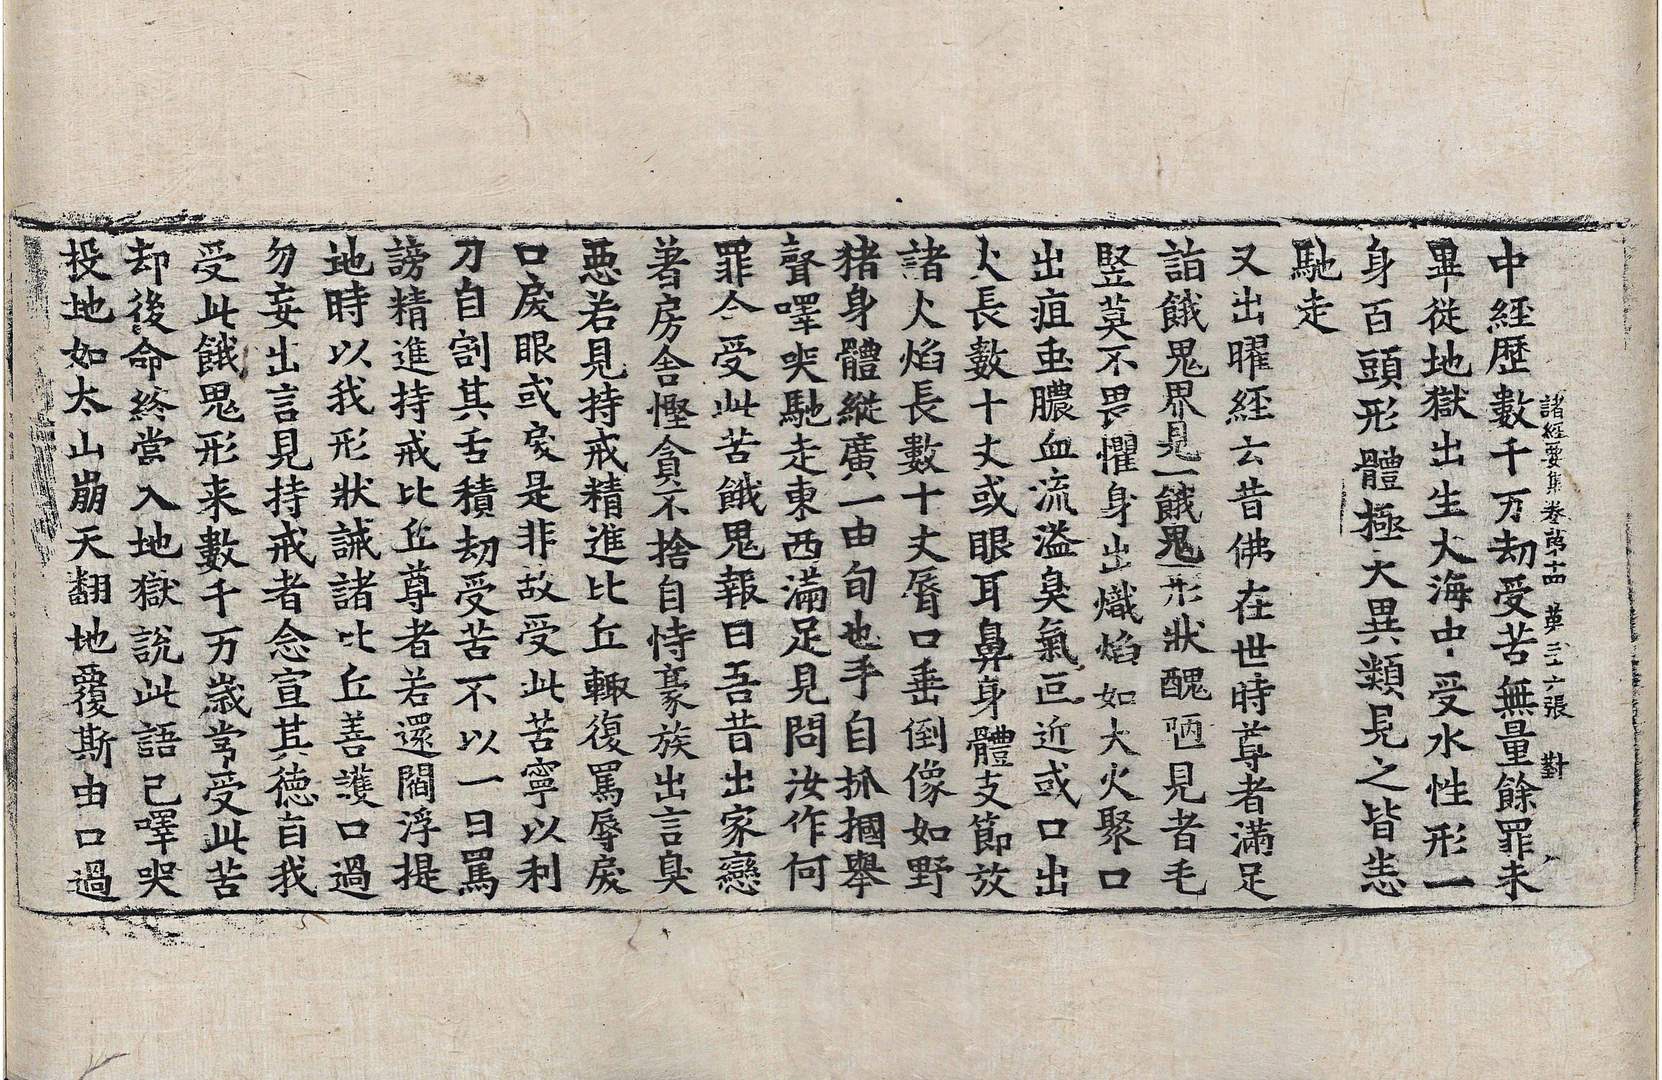 諸經要集卷第十四 第三六張 對
中經歷數千万劫受苦無量餘罪未
畢從地獄出生大海中受水性形一
身百頭形體極大異類見之皆悉
馳走
又出曜經云昔佛在世時尊者滿足
詣餓鬼界見一餓鬼形狀醜陋見者毛
竪莫不畏懼身出熾焰如大火聚口
出疽虫膿血流溢臭氣叵近或口出
火長數十丈或眼耳鼻身體支節放
諸火焰長數十丈脣口垂倒像如野
猪身體縱廣一由旬也手自抓摑舉
聲嘷哭馳走東西滿足見問汝作何
罪今受此苦餓鬼報曰吾昔出家戀
著房舍慳貪不捨自恃豪族出言臭
惡若見持戒精進比丘輙復罵辱戾
口戾眼或戾是非故受此苦寧以利
刀自割其舌積劫受苦不以一日罵
謗精進持戒比丘尊者若還閻浮提
地時以我形狀誡諸比丘善護口過
勿妄出言見持戒者念宣其德自我
受此餓鬼形来數千万歲常受此苦
却後命終當入地獄說此語已嘷哭
投地如太山崩天翻地覆斯由口過